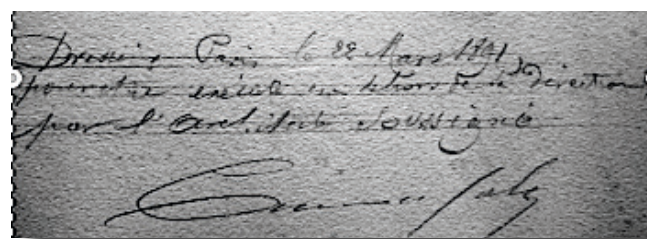 Dressé à Paris, le 22 Mars 1891,
pour être exécuté en dehors de la direction
par l'architecte soussigné